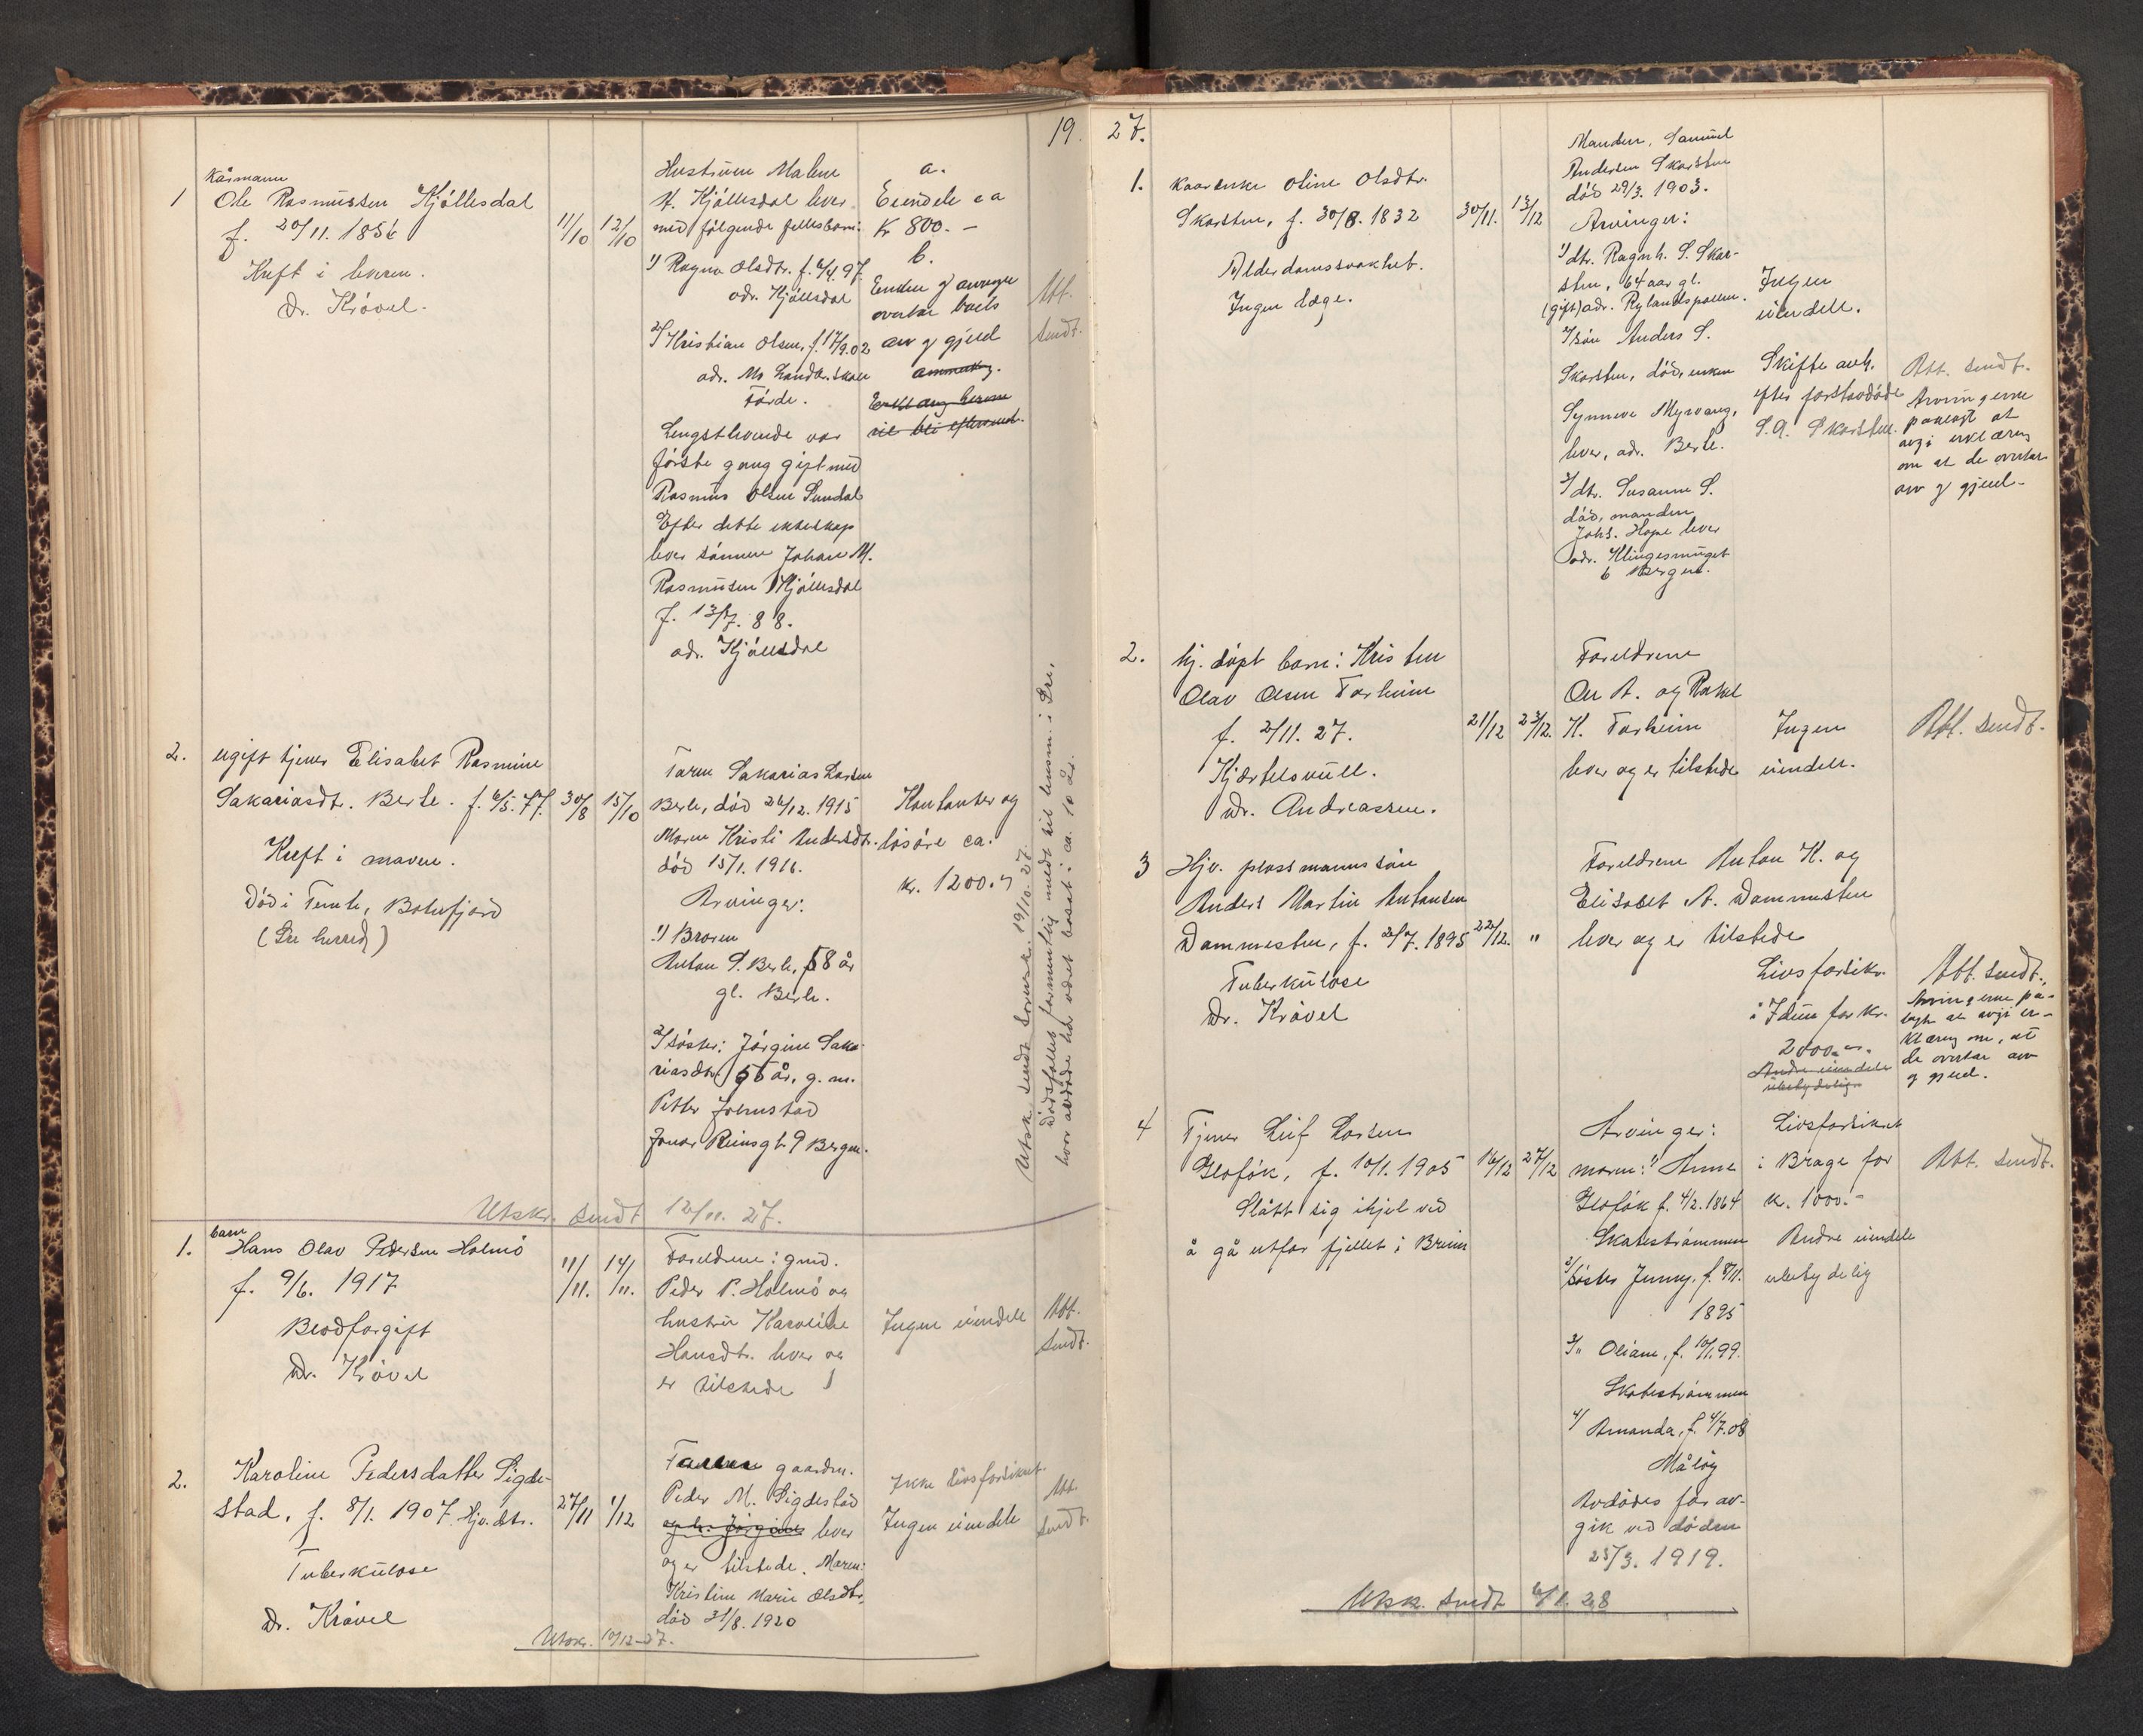 19 27.
1
Kårmann
Ole Rasmussen Kjöllesdal
f. 20/11. 1856
Kreft i leveren.
Dr. Krövel.
11/10 12/10
Hustruen Malene
A. Kjöllesdal lever
med følgende fellesbarn:
1) Ragna Olsdtr. f. 6/4 97.
adr. Kjöllesdal
2) Kristian Olsen, f. 17/9.02
adr. Mo Landbr.skole
Förde.
Lengstlevende var
förste gang gift med
Rasmus Olsen Sundal
Efter dette ekteskap
lever sönnen Johan M.
Rasmussen Kjöllesdal
f. 13/7. 88.
adr. Kjöllesdal
a.
Eiendele ca
Kr 800. -
b.
Enken og arvinger
overtar boets
arv og gjeld
anmerkng.
Erklæring herom
vil bli eftersendt.
Att.
sendt.
2. ugift tjener Elisabet Rasmine
Sakariasdtr. Berle. f. 6/5. 77. 30/8 15/10
Kreft i maven.
Död i Botnfjord
(Bre herred)
Faren Sakarias Larsen
Berle, död 26/12. 1915
Moren Kristi Andersdtr.
död 15/1. 1916.
Arvinger:
1) Broren
Anton S. Berle, 58 år
gl. Berle.
2) söster: Jörgine Saka-
riasdtr. 56 år, g. m.
Petter Johnstad
Jonas Reinsgt. 9 Bergen.
Kontanter og
lösöre ca.
kr. 1200.-
Utskr. sendt Sorenskr. 19/10. 27.
Dödsfallet formentlig meldt til lensm. i Bre,
hvor avdöde har været bosat i ca. 10 år.
Utskr. sendt 12/11. 27.
1. barn
Hans Olav Pedersen Holmö
f. 9/6. 1917
Blodforgift
Dr. Krövel
11/11. 14/11.
Foreldrene: gmd.
Peder P. Holmö og
hustru Karoline
Hansdtr. lever og
er tilstede
Ingen eiendele
Att.
sendt.
2. Karoline Pedersdatter Sigde-
stad, f. 8/1. 1907. Hjv. dtr. 27/11 1/12
Tuberkulose
Dr. Krövel
Faren gaardm.
Peder M. Sigdestad
og h. Jörgine lever
og er tilstede. Moren:
Kristine Marie Olsdtr.
död 31/8. 1920
Ikke livsforsikret.
Ingen eiendele
Att.
sendt.
Utskr. 10/12-27.
1. Kaarenke Oline Olsdtr.
Skarsten, f. 30/8. 1832 30/11. 13/12
Alderdomssvakhet.
Ingen læge.
Manden, Samuel
Andersen Skarsten
död 29/3. 1903.
Arvinger:
1) dtr. Ragnh. S. Skar-
sten, 64 aar gl.
(gift) adr. Rylandspollen.
2) sön Anders S.
Skarsten, död, enken
Synneve Myrvang,
lever, adr. Berle.
3) dtr. Susanne S.
död, manden
Johs. Hope lever
adr. Klingesmuget
6 Bergen.
Ingen
eiendele.
Skifte avh.
efter förstavdöde
S. A. Skarsten.
Att. sendt.
Arvingerne
paalagt at
avgi erklæring
om at de overtar
arv og gjeld.
2. hj. döpt barn: Kristen
Olav Olsen Torheim
f. 2/11. 27. 21/12 23/12.
Hjertelsvull.
Dr. Andreassen.
Foreldrene
Ole A. og Rakel
K. Torheim
lever og er tilstede
Ingen
eiendele.
Att. sendt.
3 Hjv. plassmannssön
Anders Martin Antonsen
Dommesten, f. 2/7. 1895 22/12. "
Tuberkulose
Dr. Krövel
Foreldrene Anton K. og
Elisabet A. Dommesten
lever og er tilstede
Livsforsikr.
i Idun for kr.
2000.-
Andre eiendele
ubetydelig
Att. sendt.
Arvingerne på-
lagt at avgi er-
klæring om, at
de overtar arv
og gjeld.
4 Tjener Leif Larsen
Glofök, f. 10/1. 1905 16/12 27/12
Slått sig ihjel ved
å gå utfor fjellet i Bremanger
Arvinger:
moren: 1) Anne
Glofök f. 4/2. 1864
Skateströmmen
2) söster Jenny. f. 8/11.
1895
3) " Oliane, f. 10/1. 99.
Skateströmmen
4) Amanda, f. 4/7. 08
Måløy
Avdödes far av-
gik ved döden
25/3. 1919.
Livsforsikret
i Brage for
kr. 1000.-
Andre eiendele
ubetydelig
Att. sendt.
Utskr. sendt 6/1. 28